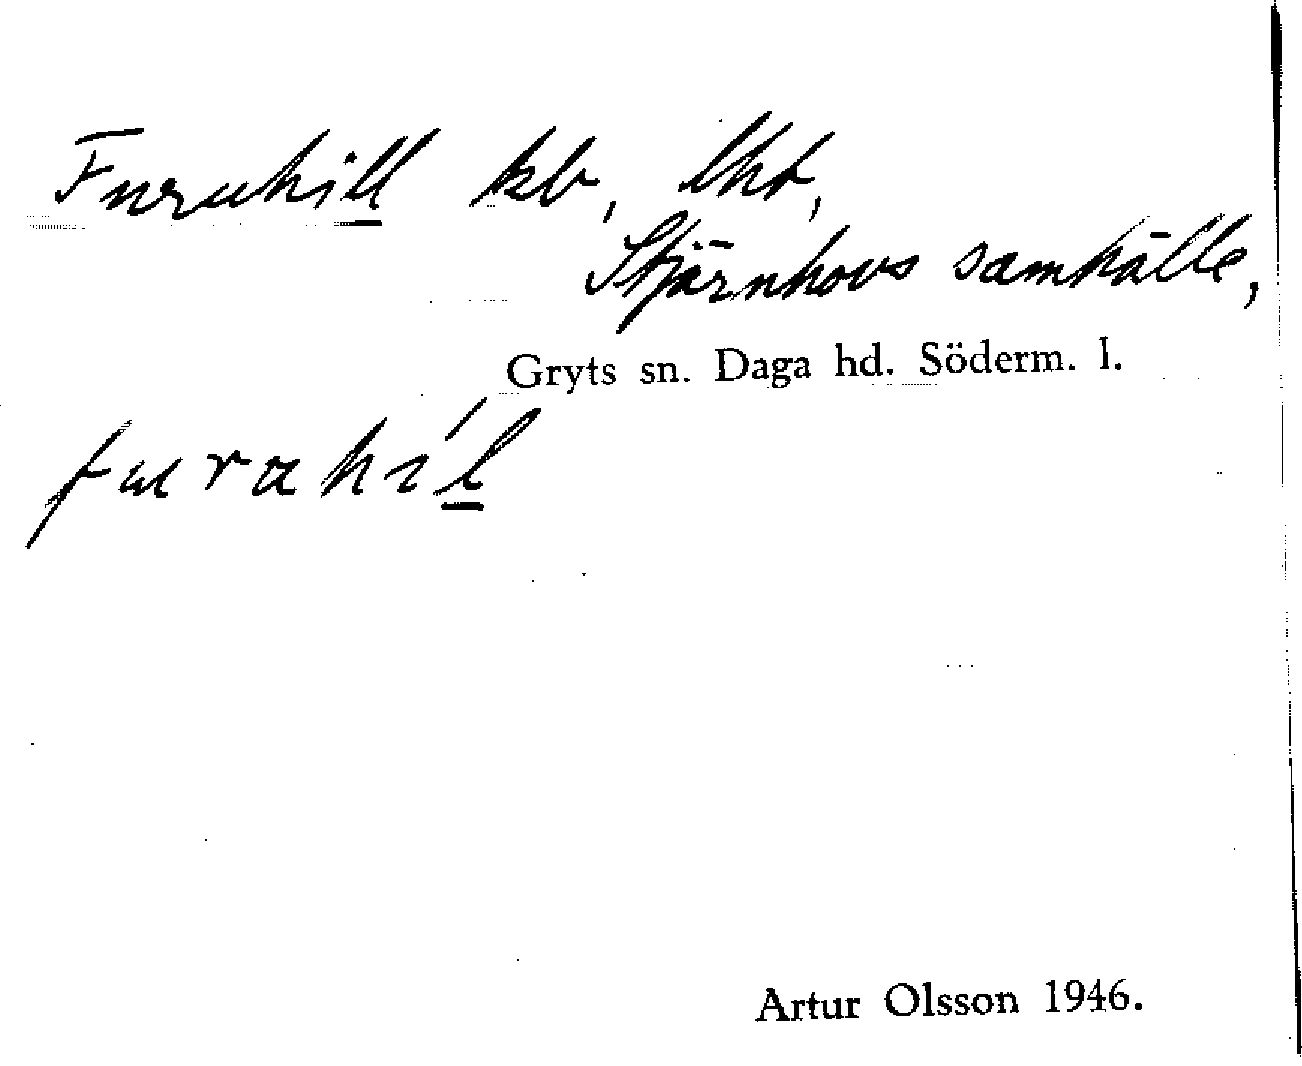 Furuhill kb, lht,
Stjärnhovs samhälle,
Gryts sn. Daga hd. Söderm. l.
furahíl
Artur Olsson 1946.